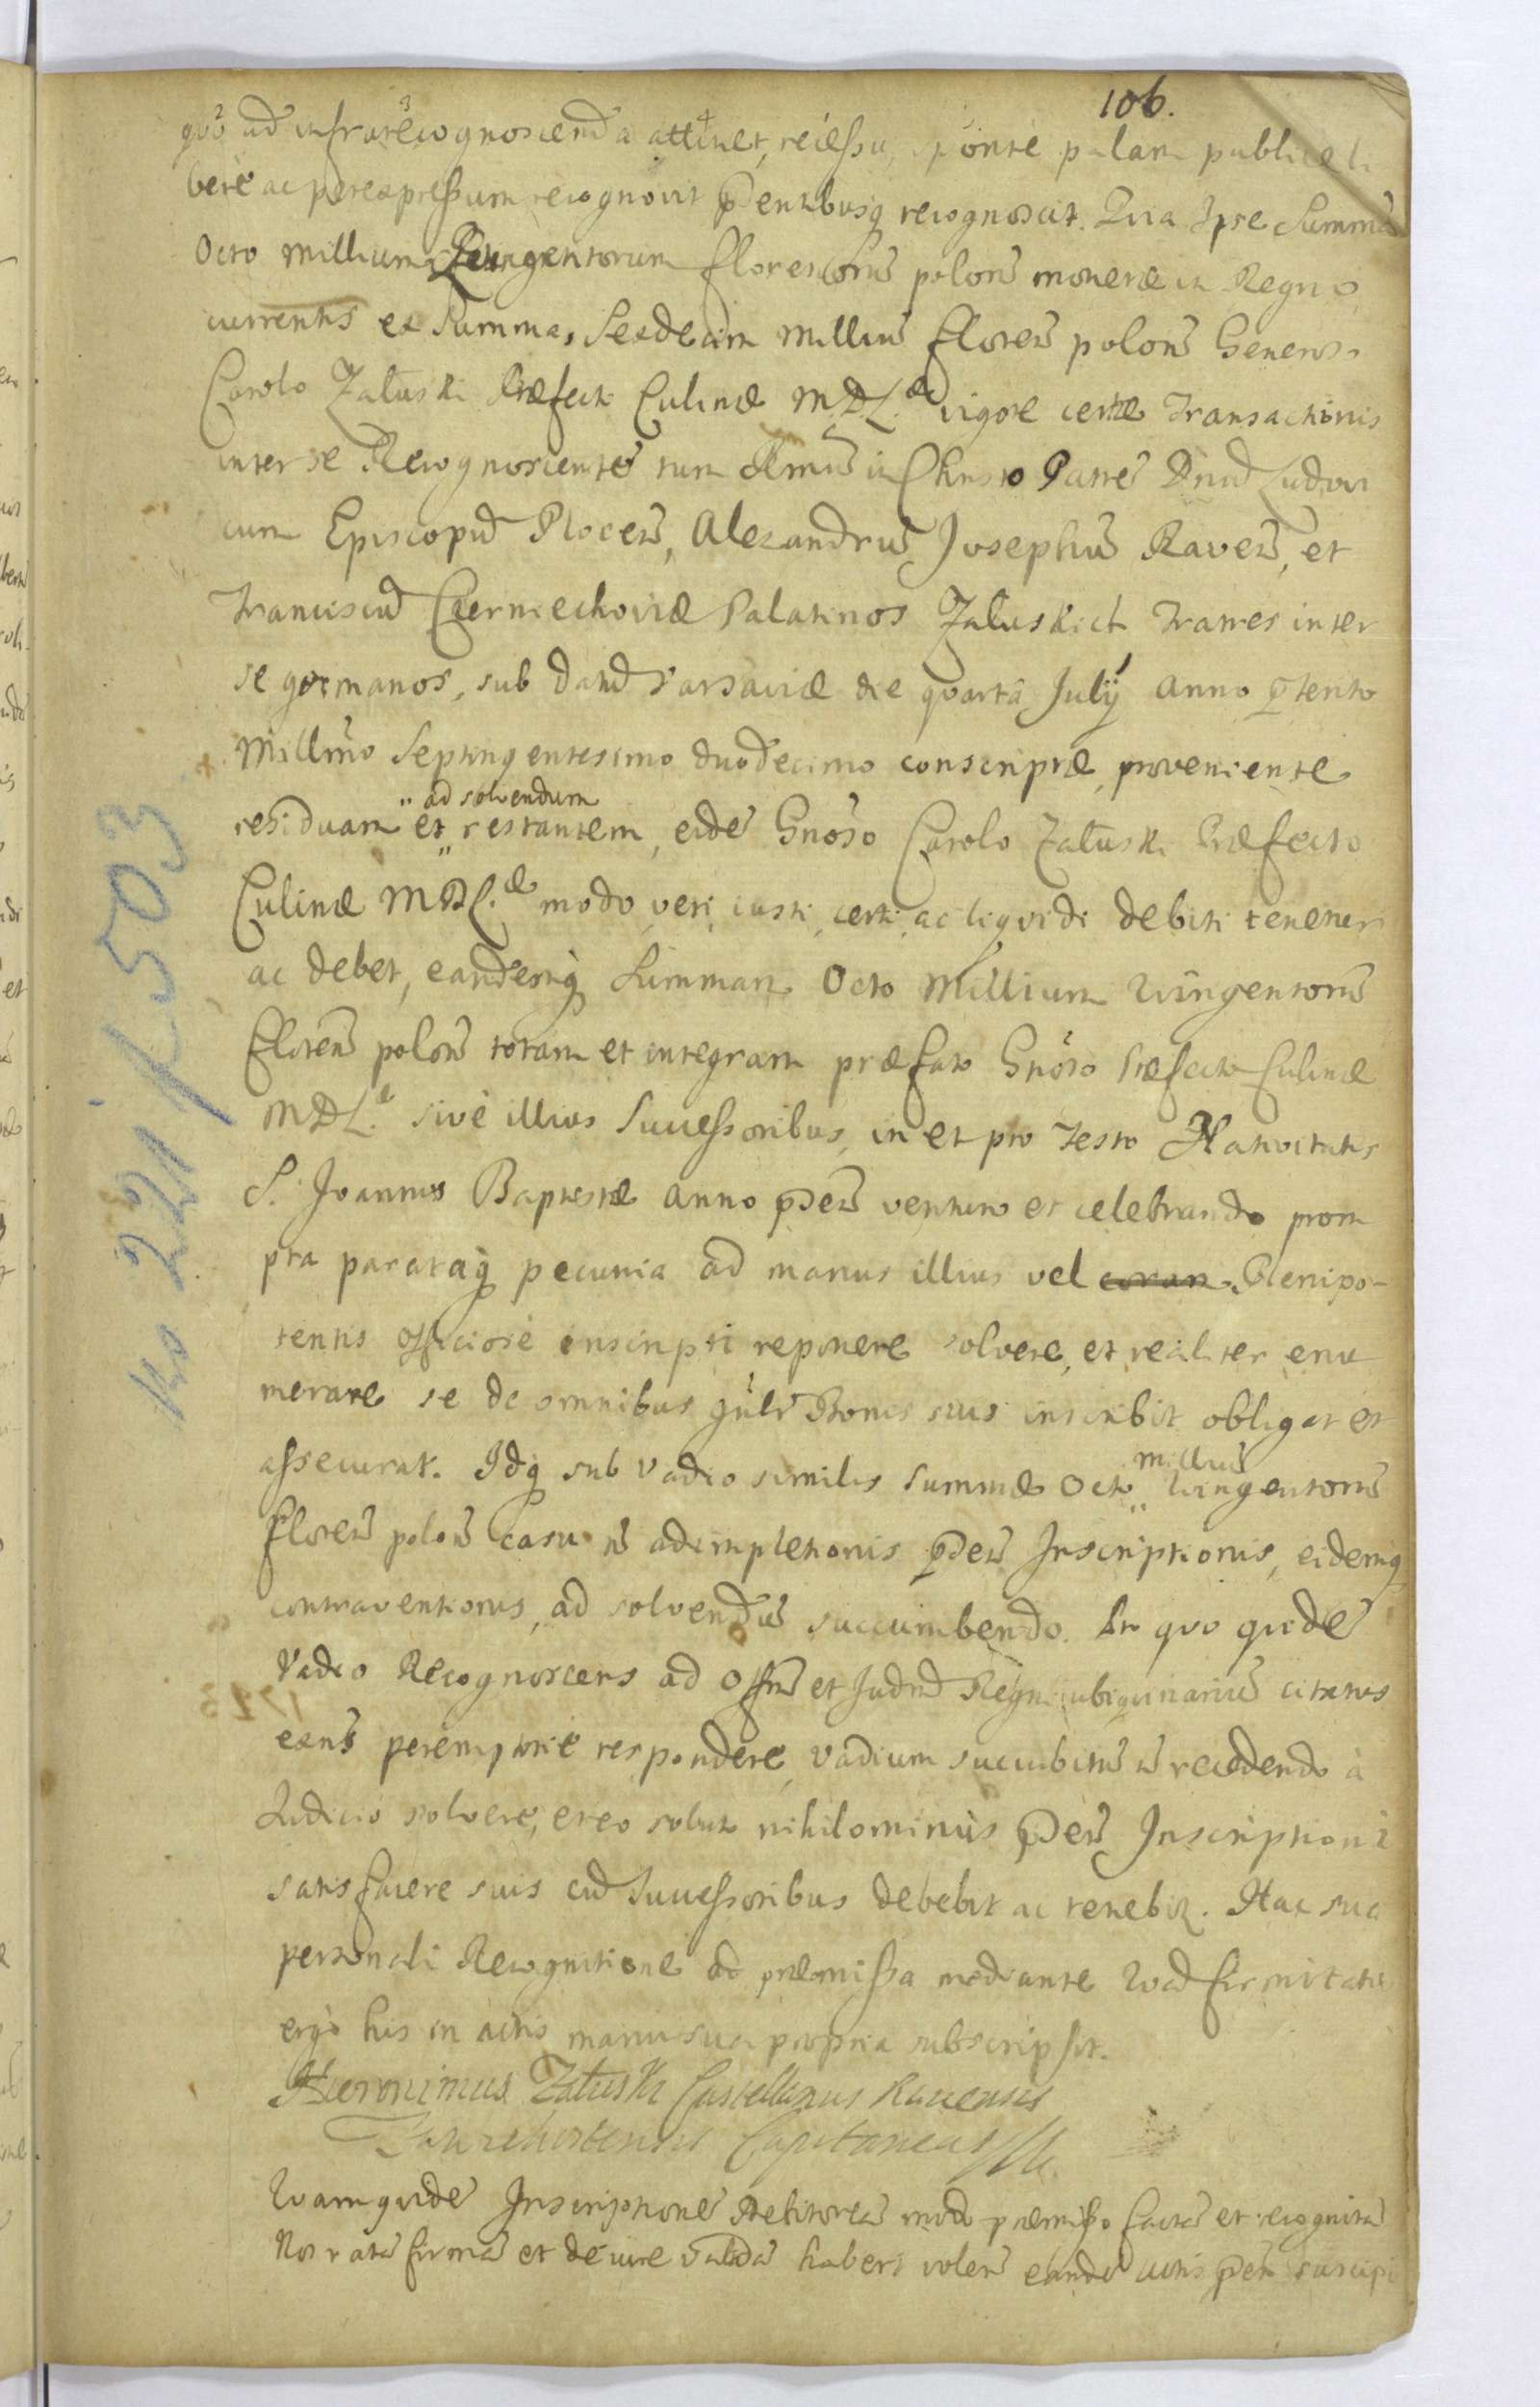 106.
quo ad infrarecognoscenda attinet, recessu, sponte palam publice li
bere ac per expressum recognovit pentibusq recognoscit. Quia Ipse Summã
Octo millium Quingentorum florenorũ polonũ monetæ in Regno
currentis ex Summa, Sexdecim milliũ florenũ polonũ Generoso
Carolo Załuski Præfecto Culinæ M.D.L.æ vigore certæ Transactionis
inter se Recognoscentẽ tum Rmũ in Christo Patrẽ Dnũ Ludovi
cum Episcopũ Plocen, Alexandrũ Josephũ Raven, et
Franciscũ Czerniechoviæ Palatinos Załuskich Fratres inter
se germanos, sub datũ Varsaviæ die quartâ Julij anno pterito
Millmo Septingentesimo duodecimo conscriptæ, proveniente
residuam et ad solvendum restantem, eidẽ Gnoso Carolo Załuski Præfecto
Culinæ MDL.æ modo veri, iusti, certi, ac liqvidi debiti tenetur
ac debet, eandemq Summam Octo Millium Quingentorũ
florenũ polonũ totam et integram præfato Gnoso Præfecto Culinæ
MDL.æ sive illius Successoribus, in et pro Festo Nativitatis
S. Joannis Baptistæ anno pñ venturo et celebrando prom
pta parataq pecunia ad manus illius vel coram Plenipo-
tentis officiose inscripti reponere solvere, et realiter enu
merare se de omnibus gnlr Bonis suis inscribit obligat et
assecurat. Idq sub vadio similis summæ Octo milliũ Quingentorũ
florenũ polonũ casu ñ adimpletionis pñ Inscriptionis, eidemq
contraventionis, ad solvendũ succumbendo. In quo quidẽ
Vadio Recognoscens ad Offm et Judm Regni ubiquinariũ citatus
exns peremptorie respondere, vadium succubitũ ñ recedendo à
Judicio solvere, et eo soluto nihilominùs pñ Inscriptioni
satisfacere suis cũ Successoribus debebit ac tenebit. Hac sua
personali Recognitione ad præmissa mediante Quad firmitatis
ergo his in actis manu sua propria subscripsit.
Hieronimus Załuski Castellanus Ravensis
Capitaneus
Quamquidẽ Inscriptionẽ Debitoreã modo præmisso factã et recognitã
Nos ratã firmã et de iure validã haberi volen eandẽ actis pñ suscipi
No 221 f 503